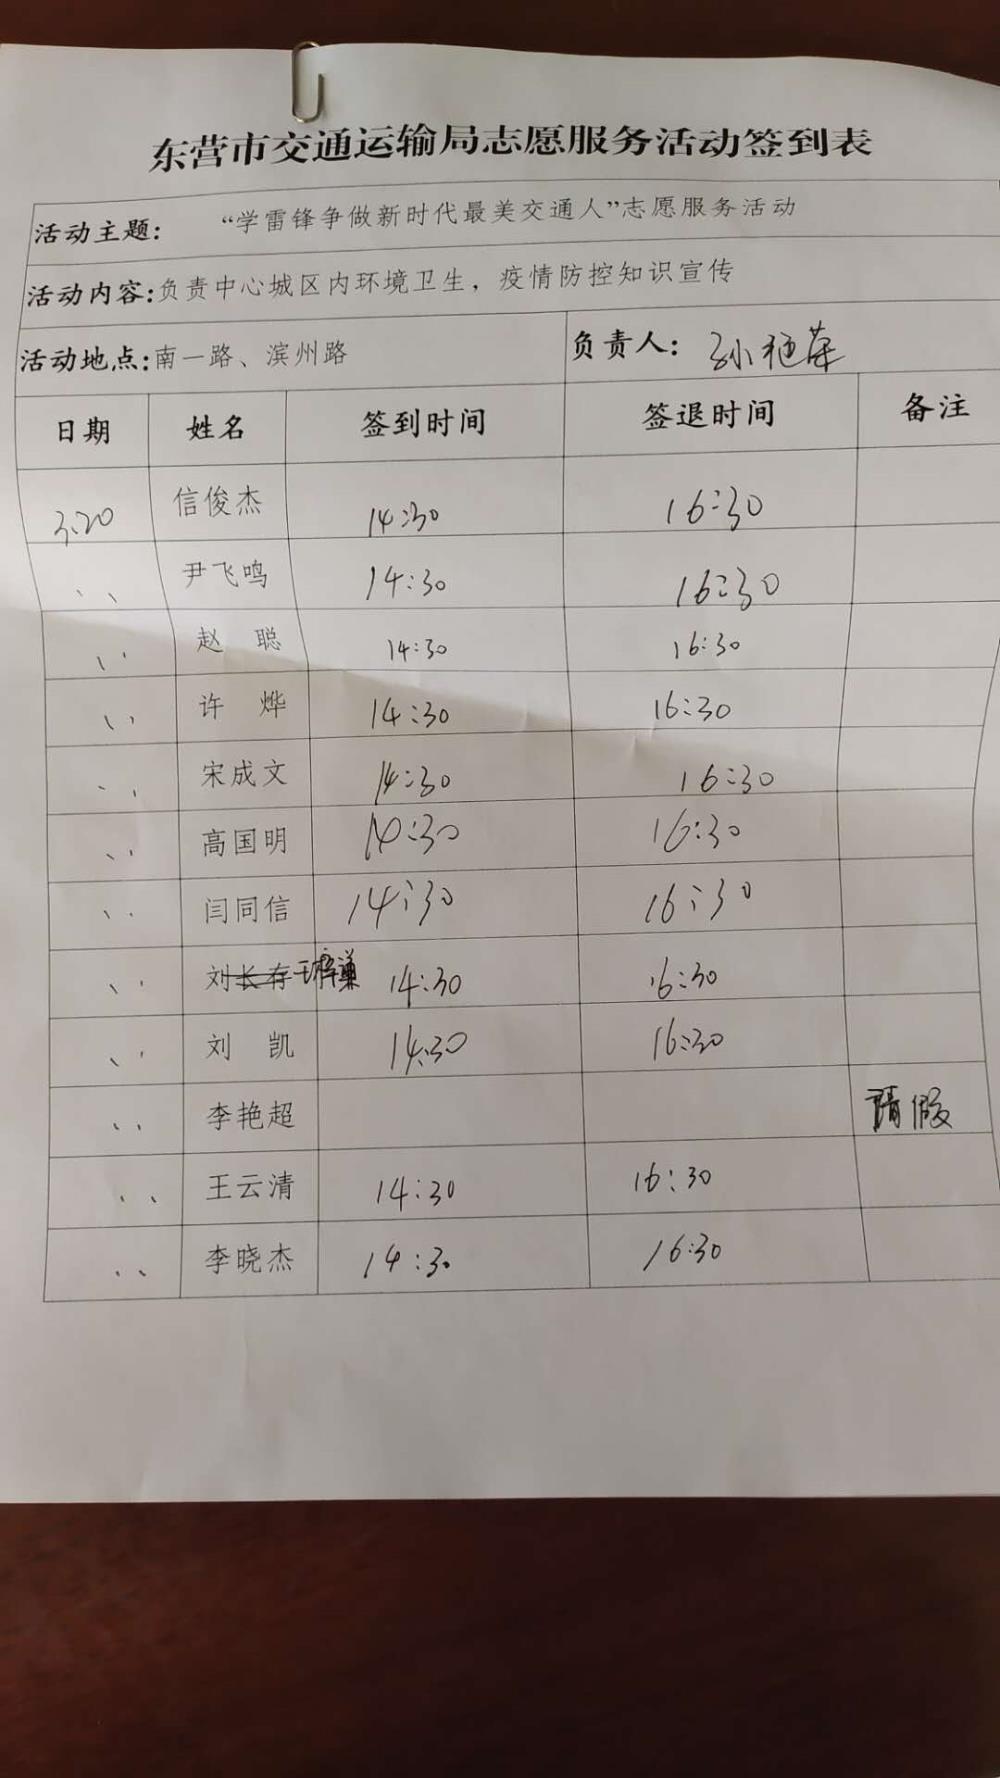 东营市交通运输局志愿服务活动签到表
活动主题： “学雷锋争做新时代最美交通人”志愿服务活动
活动内容：负责中心城区内环境卫生，疫情防控知识宣传
活动地点：南一路、滨州路 负责人： 孙
日期 姓名 签到时间 签退时间 备注
3.20 信俊杰 14:30 16:30
、、 尹飞鸣 14:30 16:30
、、 赵 聪 14:30 16:30
、、 许 烨 14:30 16:30
、、 宋成文 14:30 16:30
、、 高国明 14:30 16:30
、、 闫同信 14:30 16:30
、、 刘长存 14:30 16:30
、、 刘 凯 14:30 16:30
、、 李艳超 请假
、、 王云清 14:30 16:30
、、 李晓杰 14:30 16:30